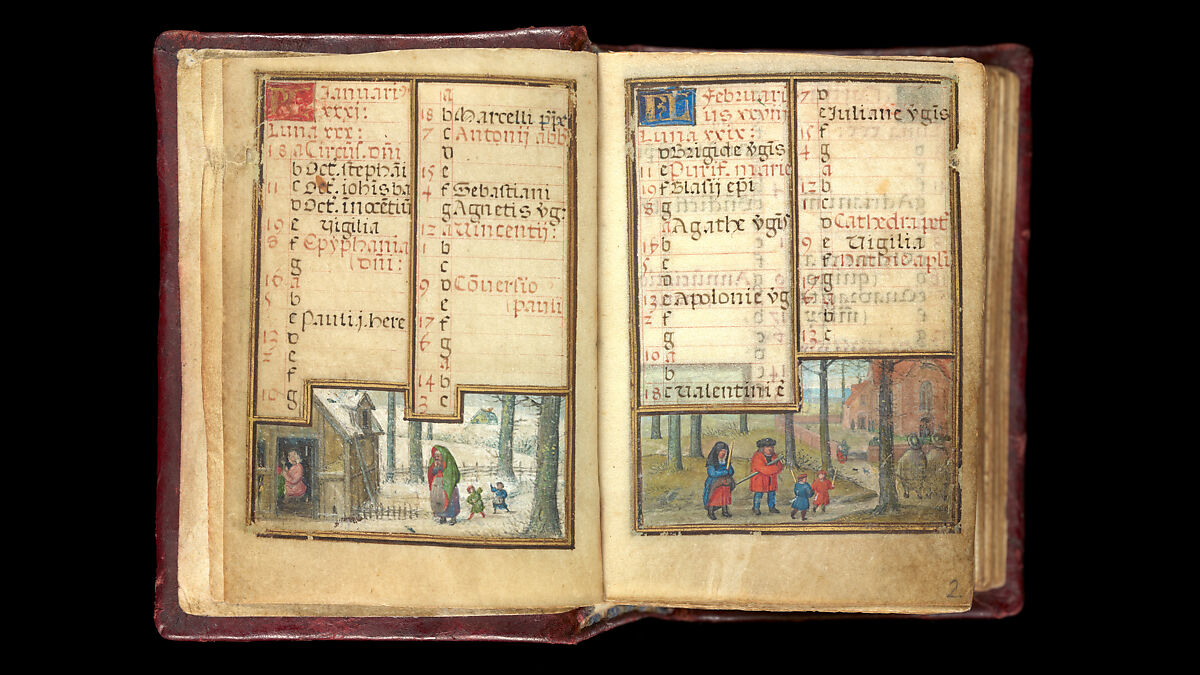 KL Januari9
xxxi:
Luna xxx:
18 a Circūs. dñi
b Oct. stephāi
11 c Oct. iohis ba
d Oct. inocētiū
19 e vigilia
8 f Epyphania
g (dñi:
16 a
5 b
c Pauli j. here
13 d
2 e
f
10 g
a
18 b Marcelli ppe
7 c Antonij abb
d
15 e
4 f Sebastiani
g Agnetis vg:
12 a Vincentij:
1 b
c
9 d Cōversio
e (pauli
17 f
6 g
a
14 b
3 c
FL Februari
iis xxviii
Luna xxix:
d Brigide vgis
11 e Purif. marie
19 f Blasij epi
8 g
a Agathe vgis
16 b
5 c
d
13 e Apolonie vg
2 f
g
10 a
b
18 c Valentini
7 d
e Juliane vgis
15 f
4 g
a
12 b
1 c
d Cathedra pet
9 e Vigilia
f Mathie apli
g
6 a
b
13 c
2